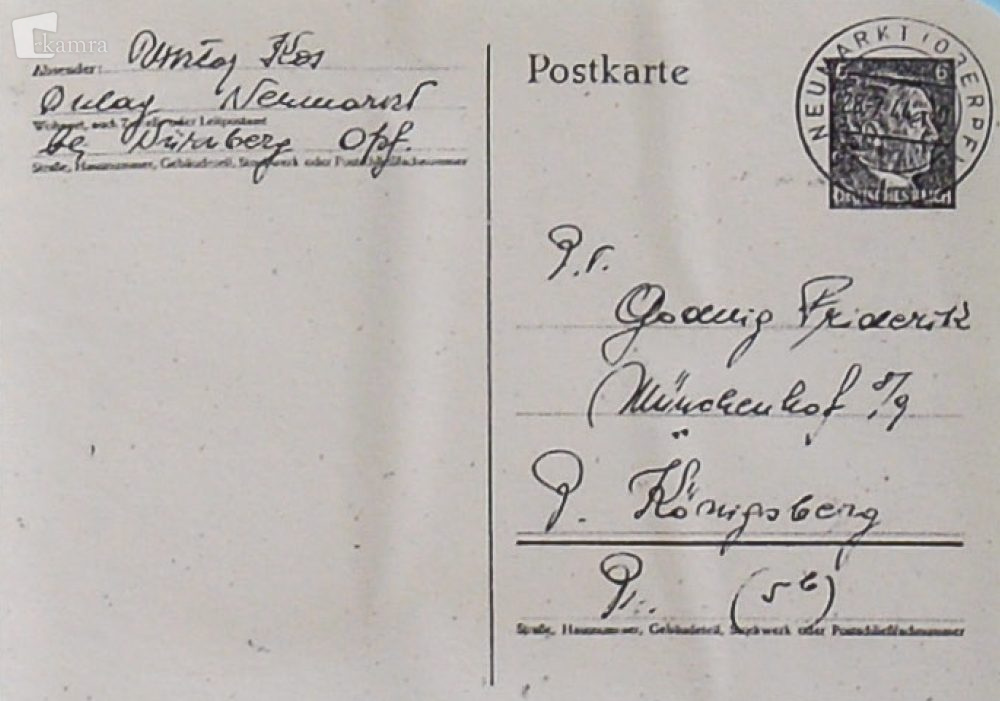 kamra
Absender: Kos
Dulag Neumarkt
Wohnort, auch Zustell- oder Leitpostamt
bei Nürnberg Opf.
Straße, Hausnummer, Gebäudeteil, Stockwerk oder Postschließfachnummer
Postkarte
NEUMARKT (OBERPF)
6 6
DEUTSCHES REICH
Friderik
Münchenhof 8/9
P. Königsberg
Pr. (5b)
Straße, Hausnummer, Gebäudeteil, Stockwerk oder Postschließfachnummer